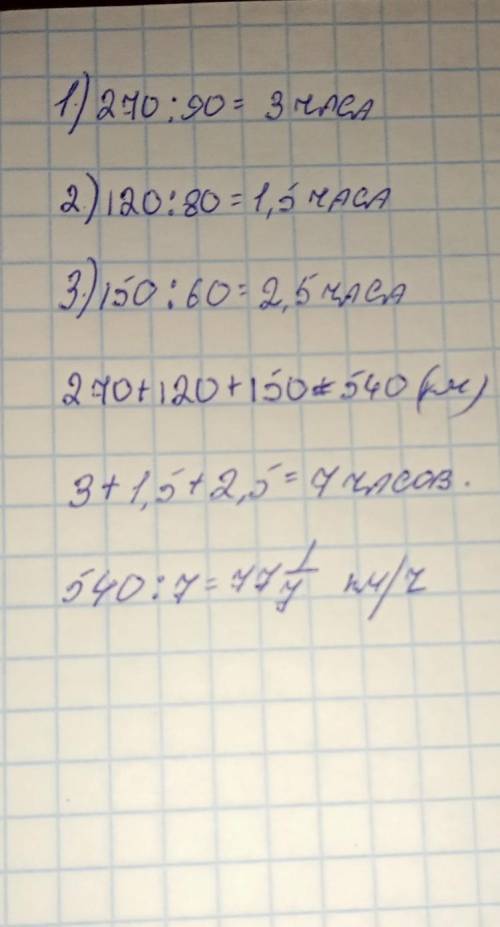 1.) 270:90 = 3 часа
2.) 120:80 = 1,5 часа
3.) 150:60 = 2,5 часа
270+120+150 = 540 (км)
3 + 1,5 + 2,5 = 7 часов.
540:7 = 77 1/7 км/ч